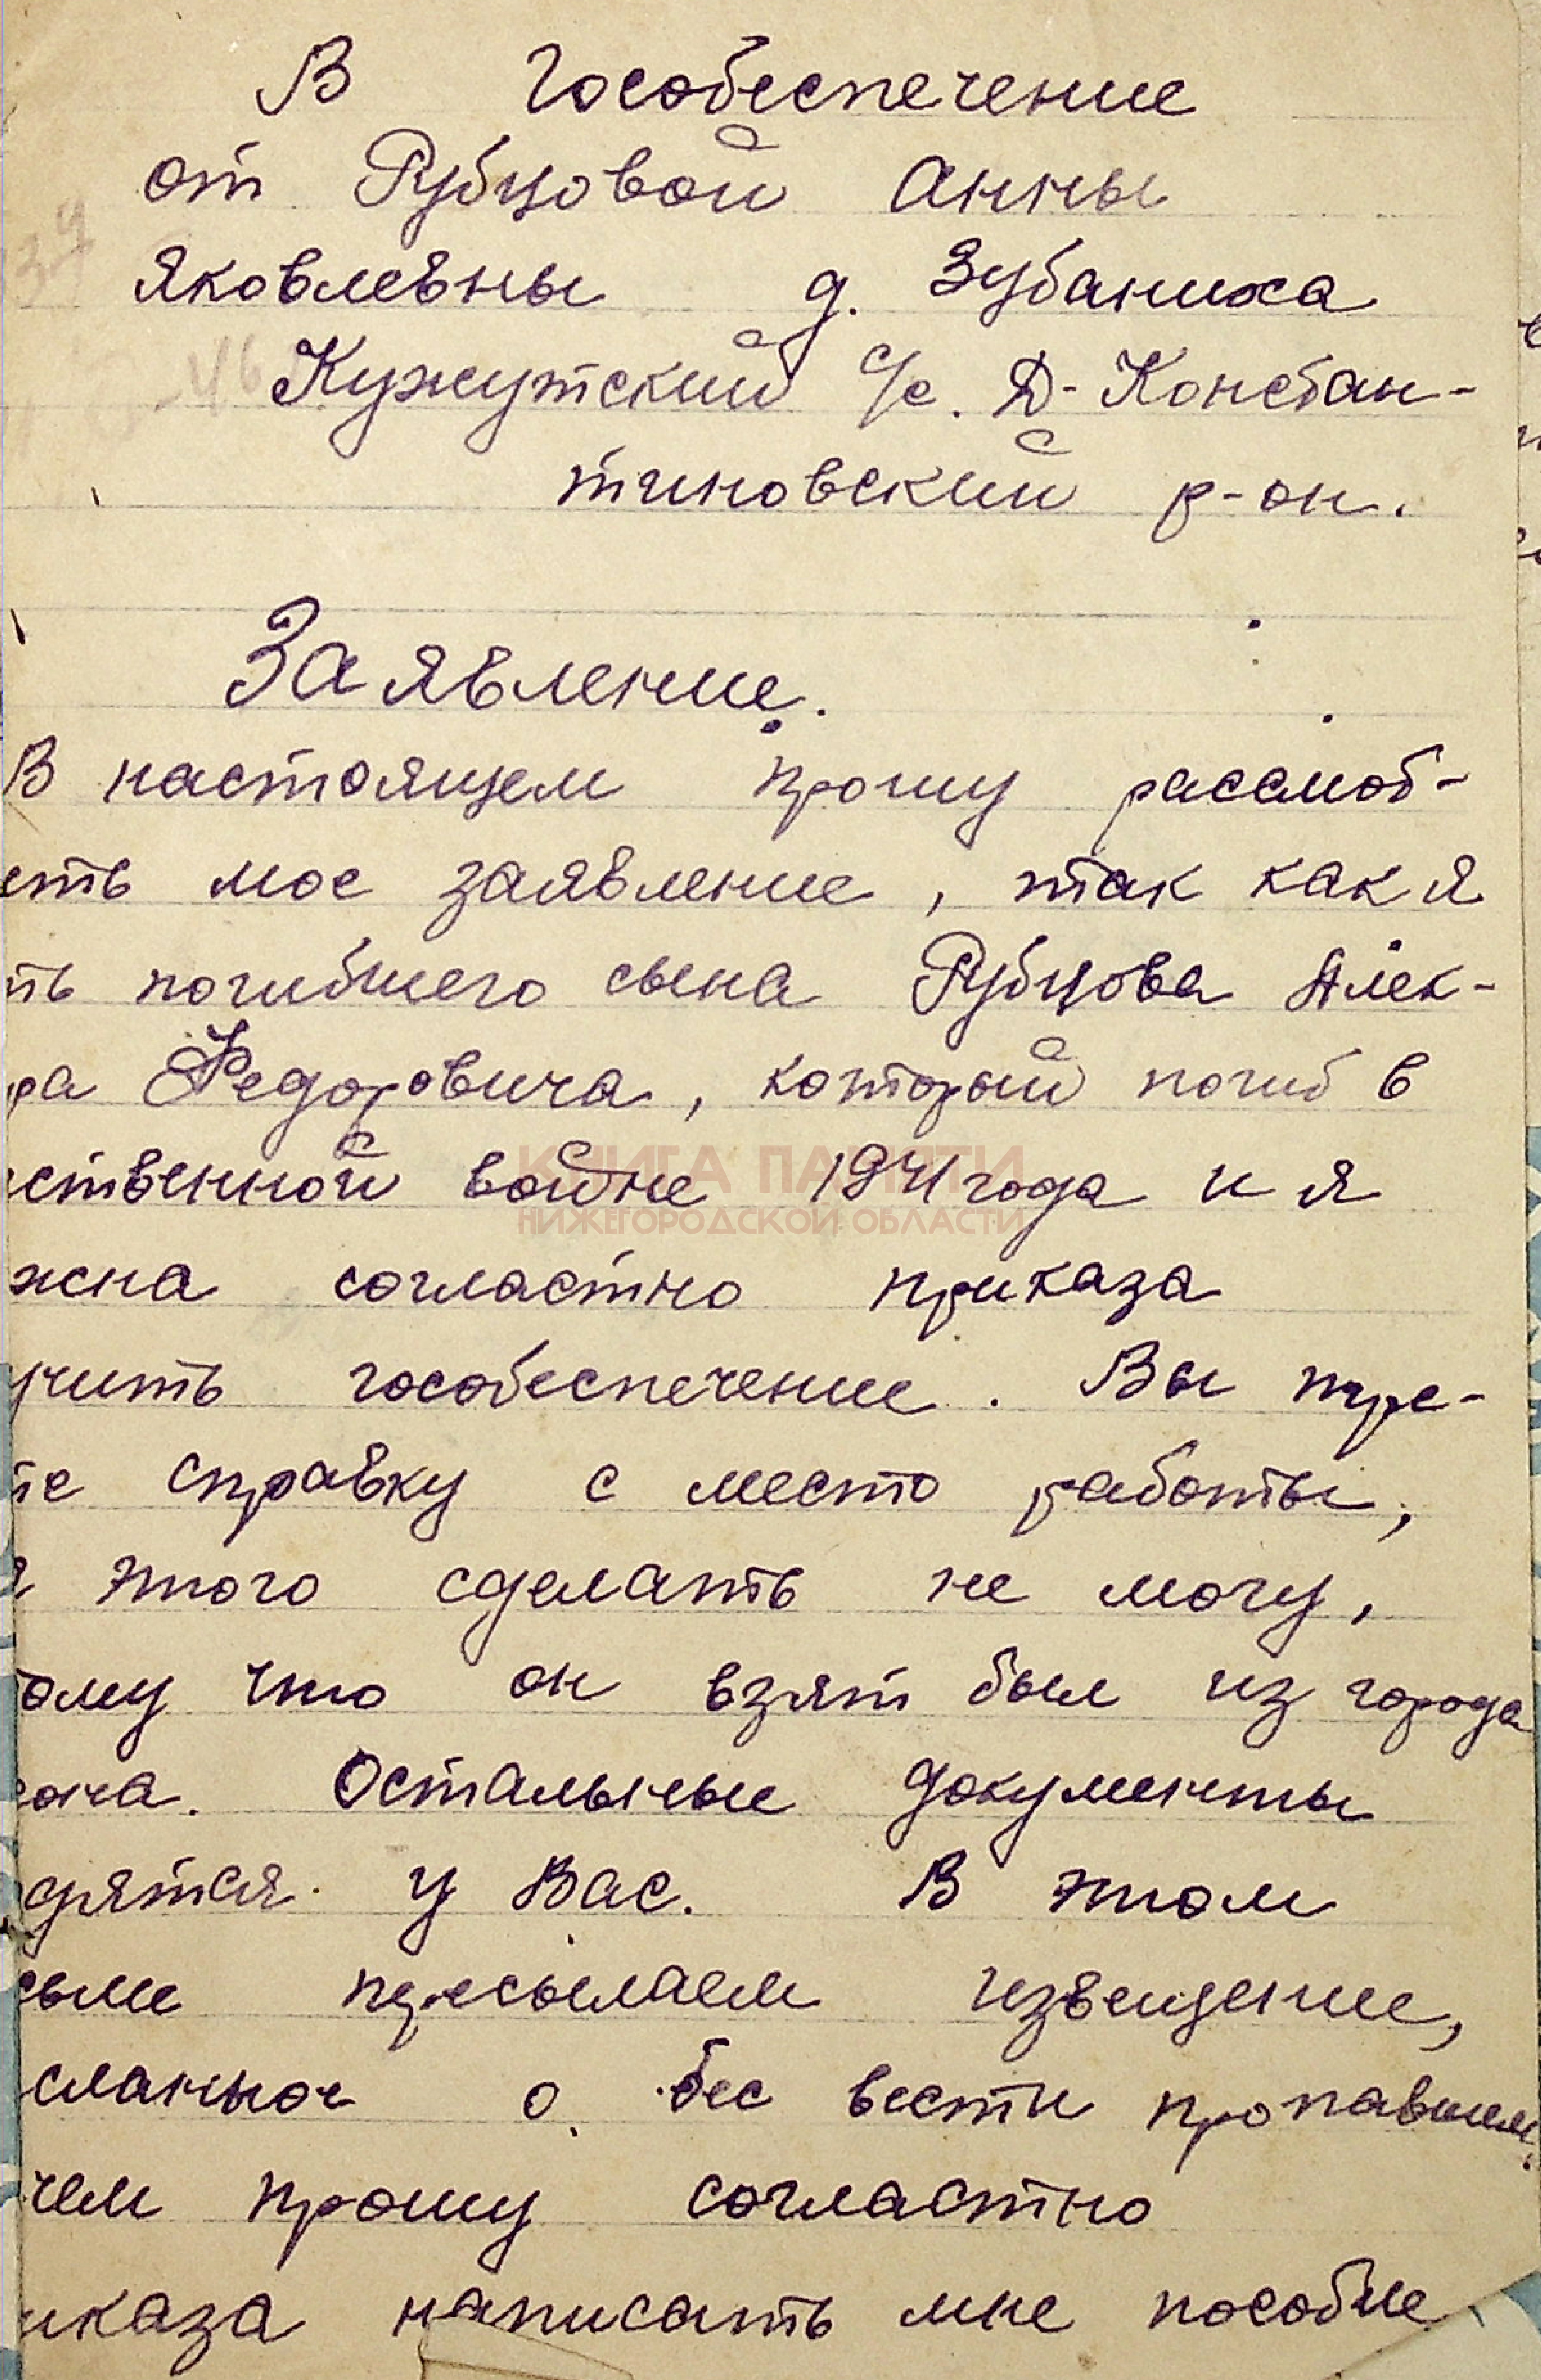 В Гособеспечение
от Рубцовой Анны
Яковлевны д. Зубаниха
Кужутский с/с. Д-Констан-
тиновский р-он.
Заявление.
В настоящем прошу рассмот-
еть мое заявление, так как я
ть погибшего сына Рубцова Алек-
ра Федоровича, который погиб в
ественной войне 1941 года и я
жна согластно приказа
учить гособеспечение. Вы тре-
те справку с место работы,
я этого сделать не могу,
ому что он взят был из города
. Остальные документы
дятся у Вас. В этом
сьме пересылаем извещение,
сланное о бес вести пропавшем,
чем прошу согластно
иказа написать мне пособие
КНИГА ПАМЯТИ
НИЖЕГОРОДСКОЙ ОБЛАСТИ